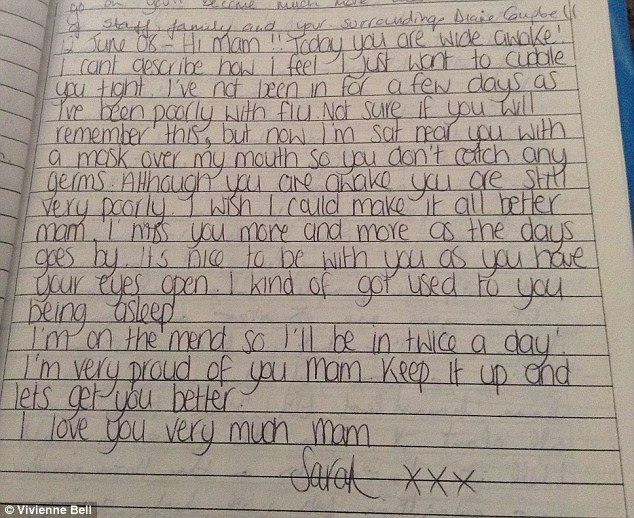 on you'll become much more
of staff, family and your surroundings Diane Campbell
12 June 08 - Hi mam!! Today you are wide awake!
I cant describe how I feel I just want to cuddle
you tight. I've not been in for a few days as
I've been poorly with flu. Not sure if you will
remember this, but now I'm sat near you with
a mask over my mouth so you don't catch any
germs. Although you are awake you are still
very poorly. I wish I could make it all better
mam, I miss you more and more as the days
goes by. It's nice to be with you as you have
your eyes open. I kind of got used to you
being asleep.
I'm on the mend so I'll be in twice a day!
I'm very proud of you mam. Keep it up and
lets get you better.
I love you very much mam
Sarah xxx
© Vivienne Bell